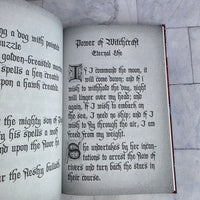 ng a dog with potent
puzzle
golden-breasted
spells a hen created
upon a hawk created
ighty son of
by his spells a
ed upon the floor he
ar the fleshy
Power of Witchcraft
Eternal Life
If I command the moon, it
will come down; and if I wish
to withhold the day, night
will linger over my head; and
again, if I wish to embark on
the sea, I need no ship, and if I
wish to fly through the air, I am
freed from my weight.
She undertakes by her incan-
tations to arrest the flow of
rivers and turn back the stars in
their course.